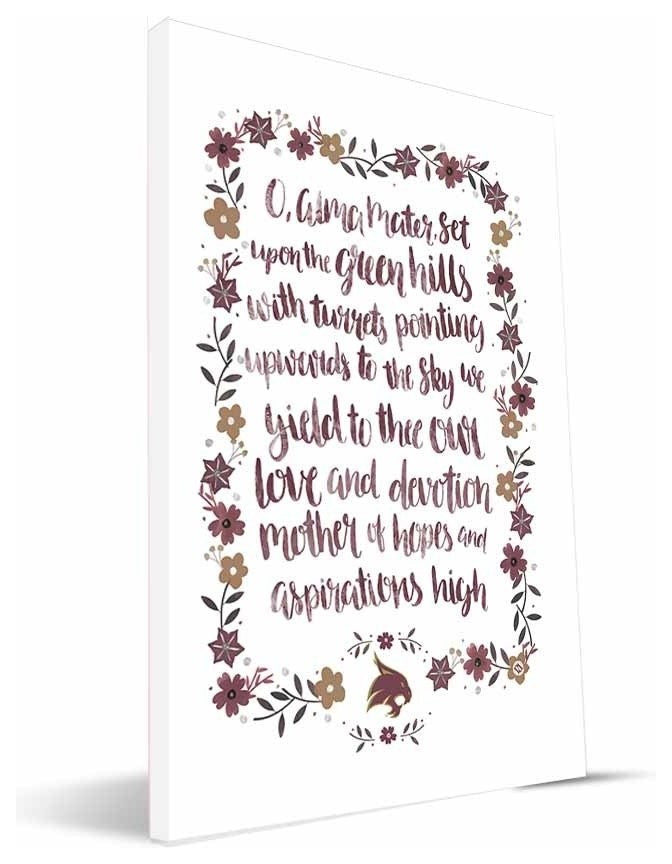 O, Alma Mater, set
upon the green hills
with turrets pointing
upwards to the sky we
yield to thee our
love and devotion
mother of hopes and
aspirations high